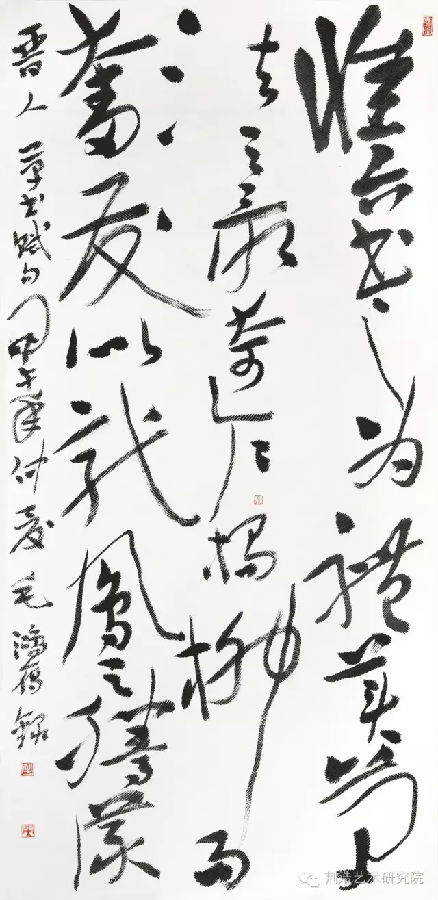 惟六書之為體美草
法之最奇乍楊柳而
奮發以龍鳳之騰儀
晋人草书賦句甲午年仲夏毛鴻錄
艺术研究院